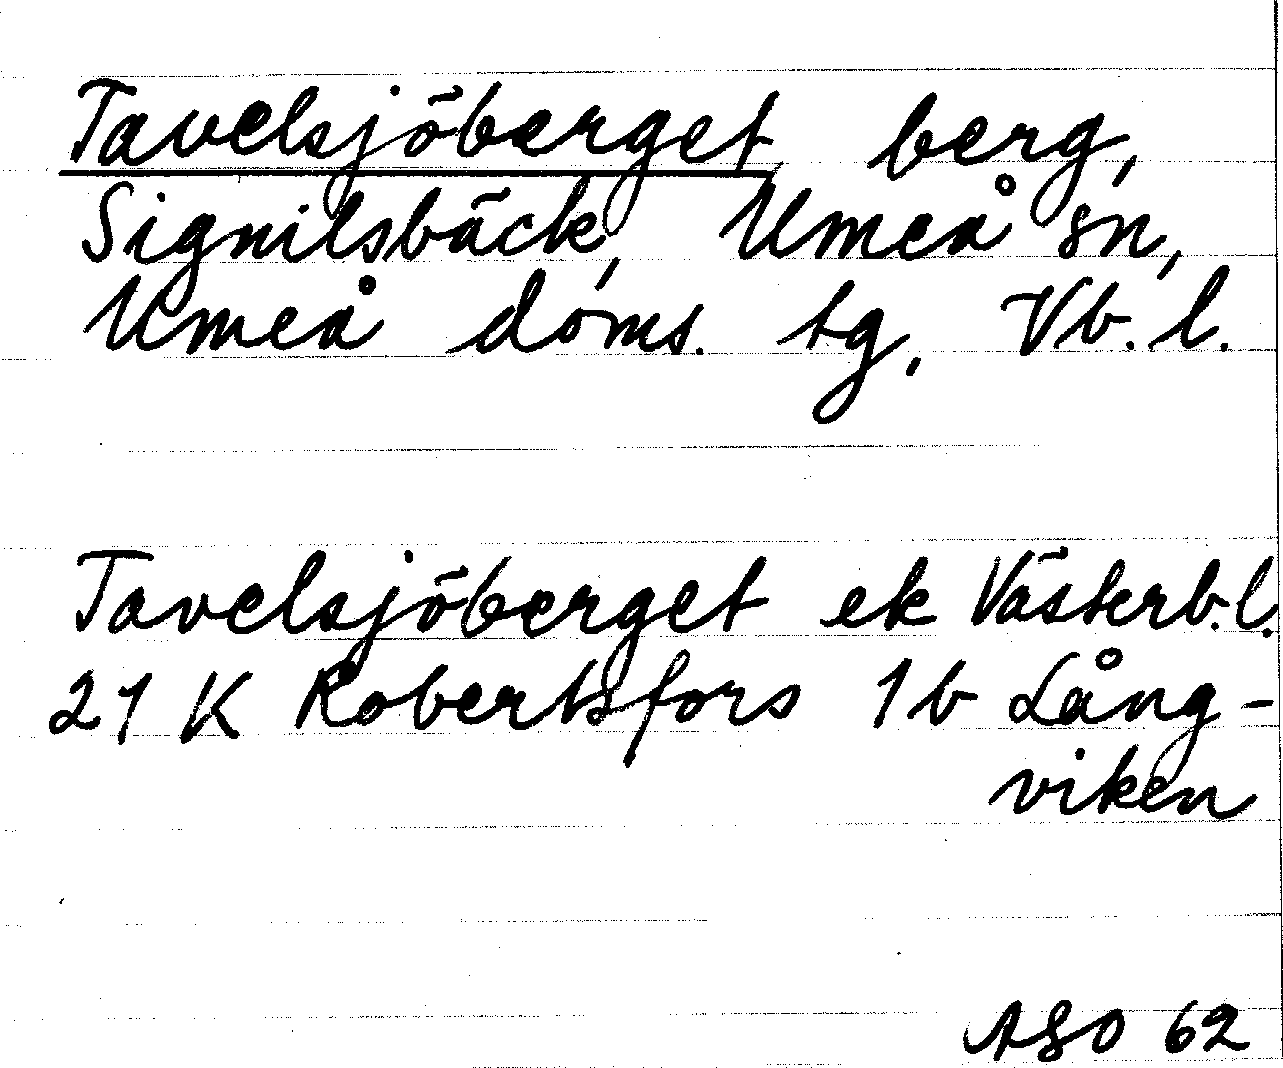 Tavelsjöberget berg,
Signilsbäck, Umeå sn,
Umeå doms. tg. Vb. l.
Tavelsjöberget ek Västerb. l.
21 K Robertsfors 1b Lång-
viken
ASO 62